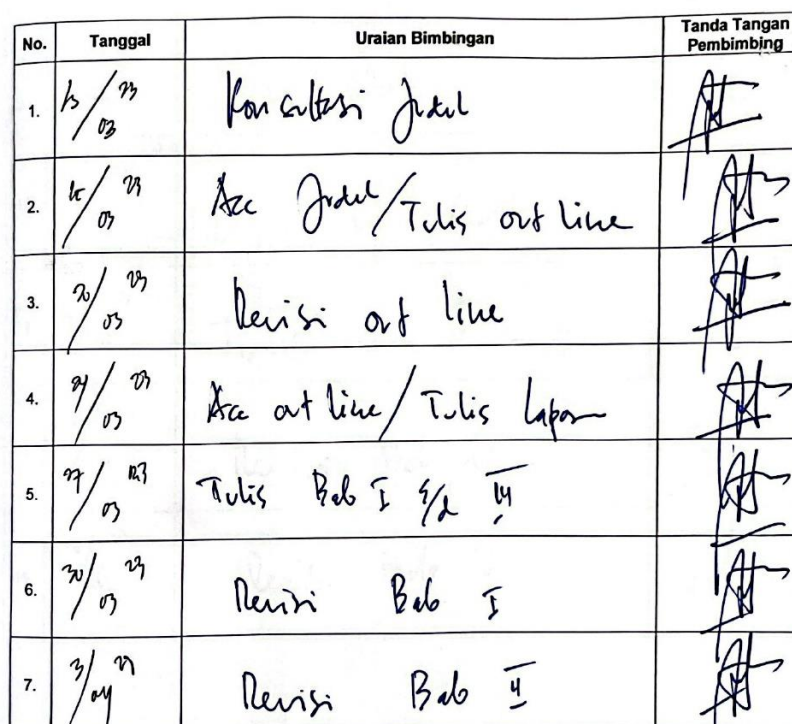 No. Tanggal Uraian Bimbingan Tanda Tangan Pembimbing
1. 13/03 23 Konsultasi Judul
2. 15/03 23 Acc Judul/Tulis out line
3. 20/03 23 Revisi out line
4. /03 23 Acc out line/Tulis Laporan
5. 27/03 23 Tulis Bab I s/d
6. 30/03 23 Revisi Bab I
7. 3/04 23 Revisi Bab II